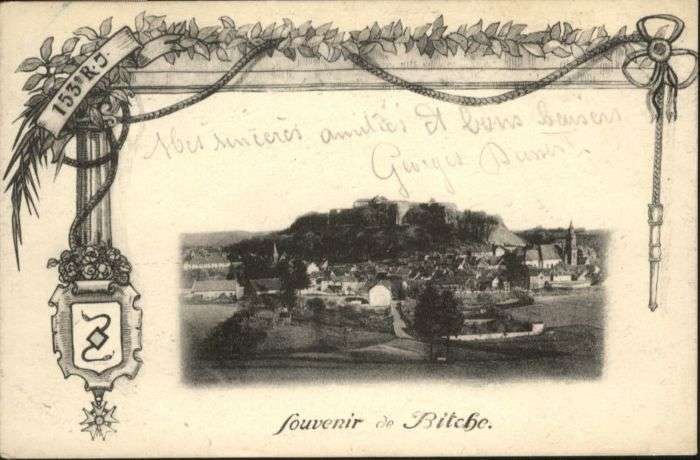 153e R. J.
Mes sincères amitiés Et bons baisers
Georges
Souvenir de Bitche.